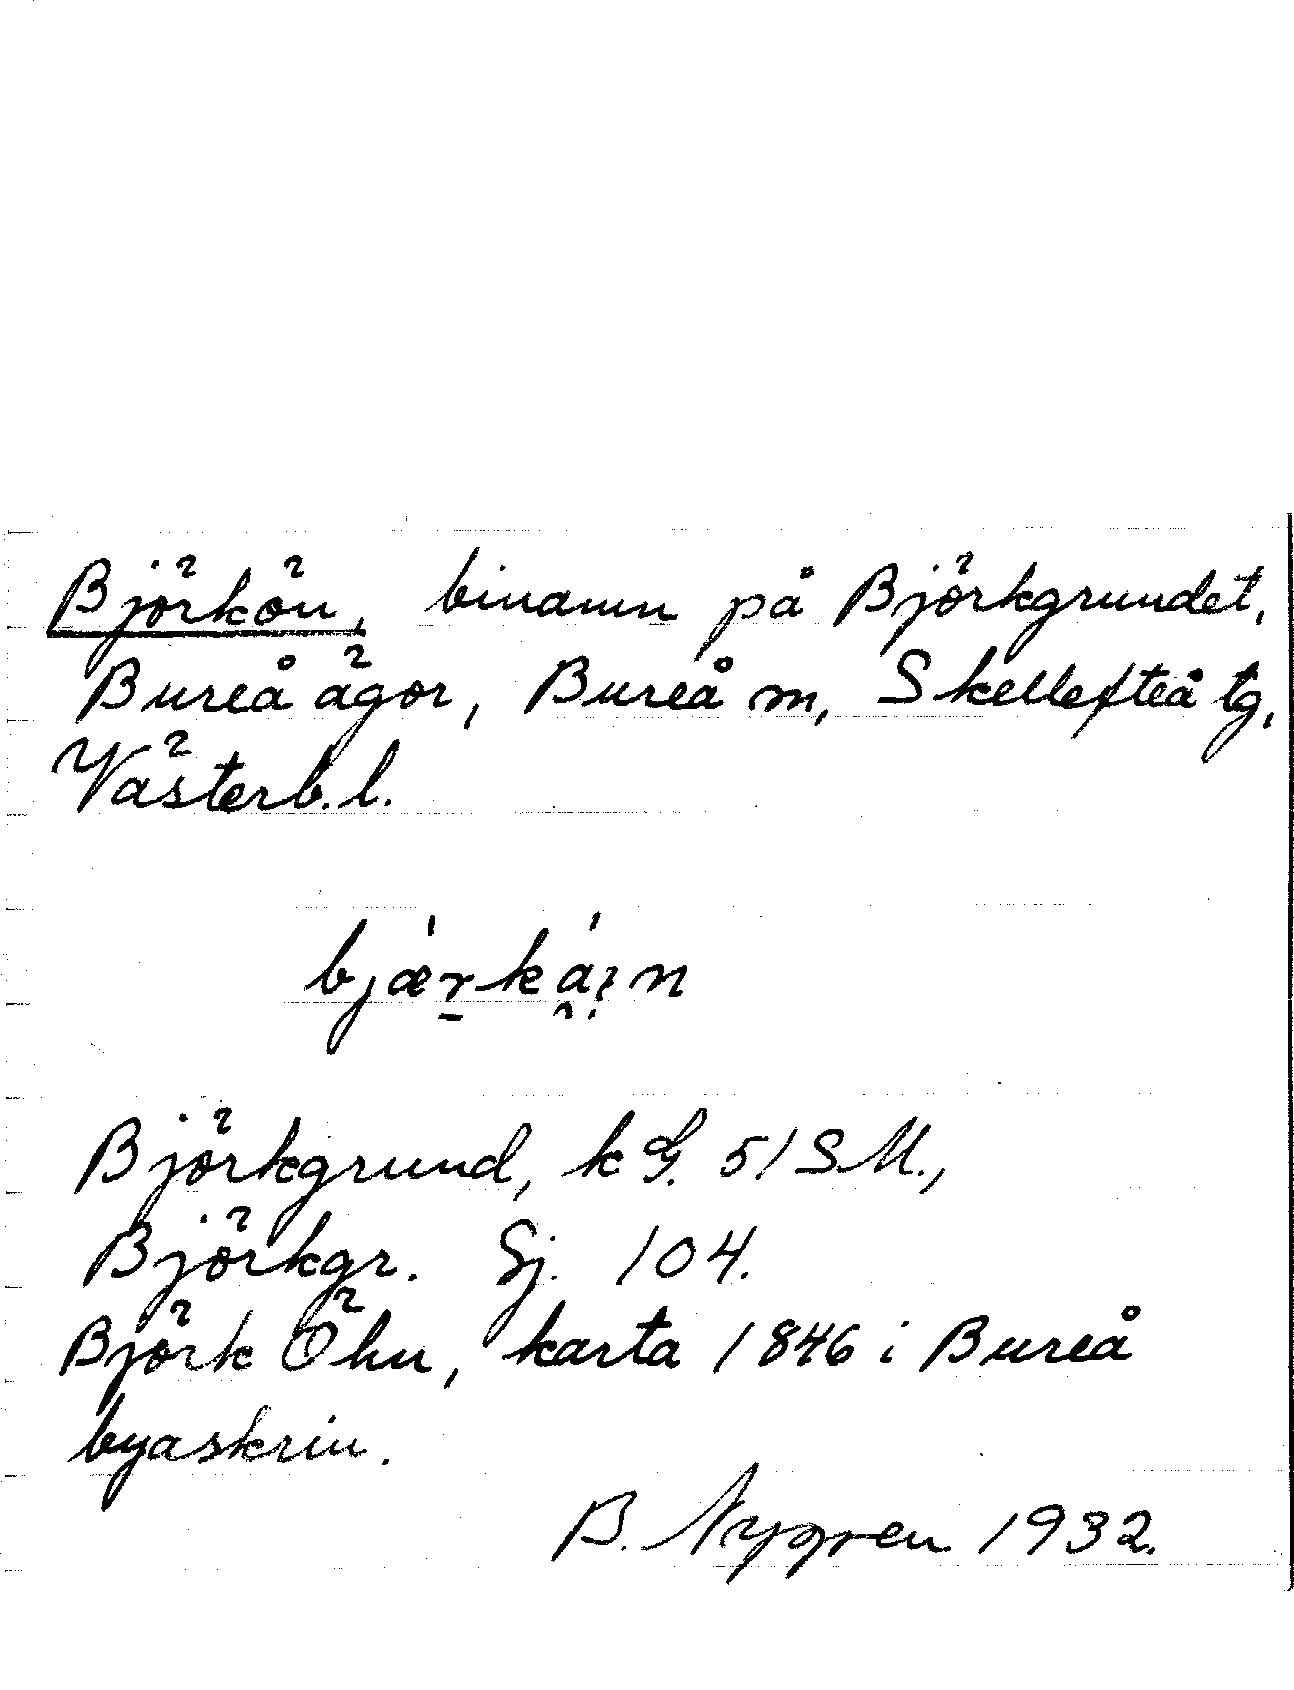 Björkön, binamn på Björkgrundet,
Bureå ägor, Bureå m, Skellefteå tg,
Västerb.l.
Björkgrund, k G. 51 S M.,
Björkgr. Sj. 104.
Björk Öhn, karta 1846 i Bureå
byaskrin.
B. Nygren 1932.